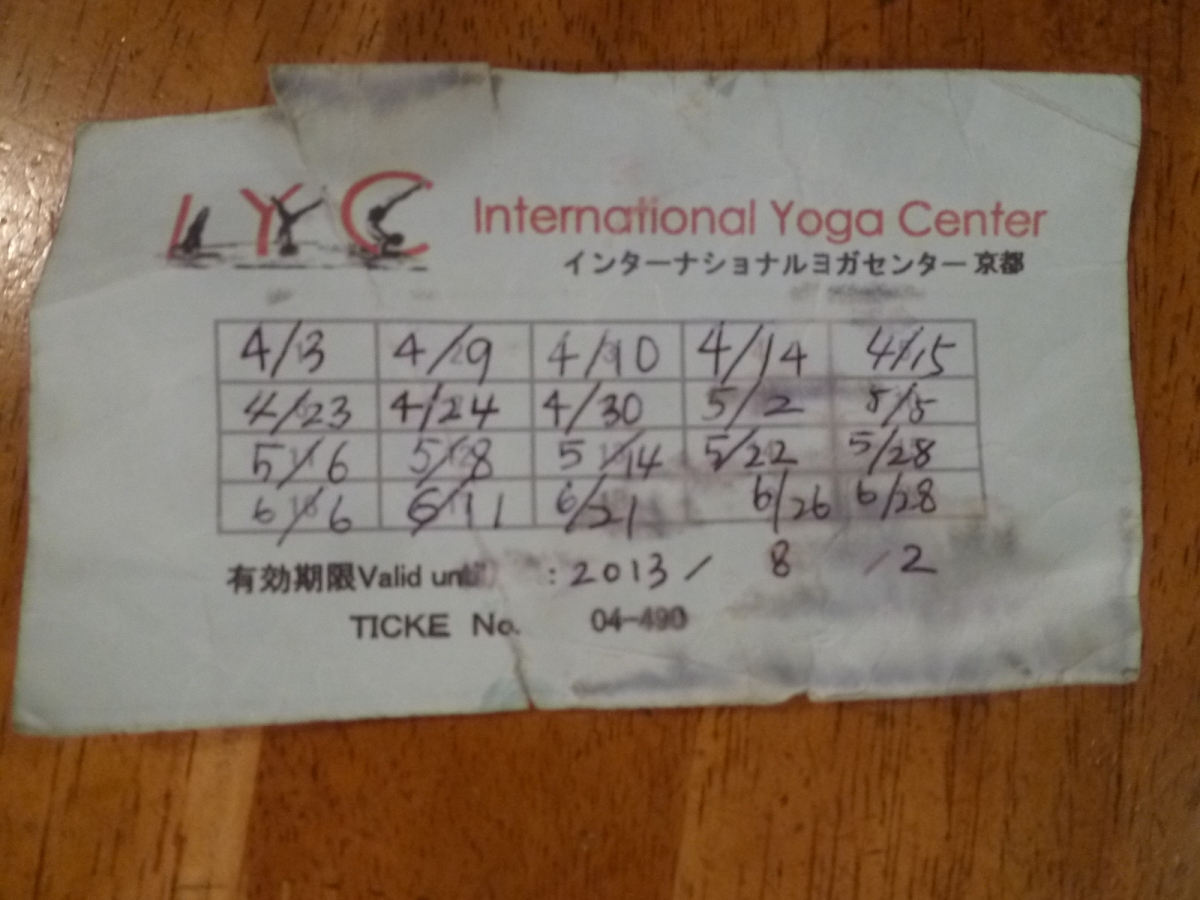 IYC
International Yoga Center
インターナショナルヨガセンター 京都
4/3 4/9 4/10 4/14 4/15
4/23 4/24 4/30 5/2 5/5
5/6 5/8 5/14 5/22 5/28
6/6 6/11 6/21 6/26 6/28
有効期限Valid until : 2013/ 8 /2
TICKE No. 04-490